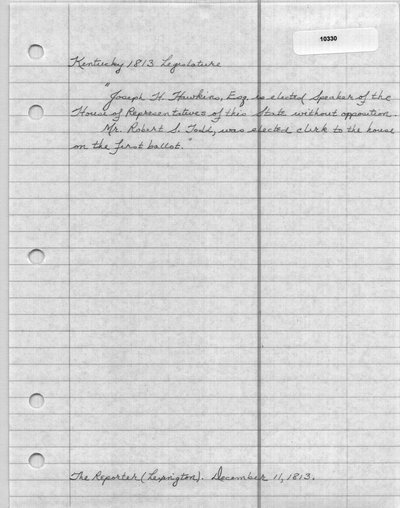 10330
Kentucky 1813 Legislature
"Joseph H. Hawkins, Esq. is elected Speaker of the
House of Representatives of this State without opposition.
Mr. Robert S. Todd, was elected clerk to the house
on the first ballot."
The Reporter (Lexington). December 11, 1813.